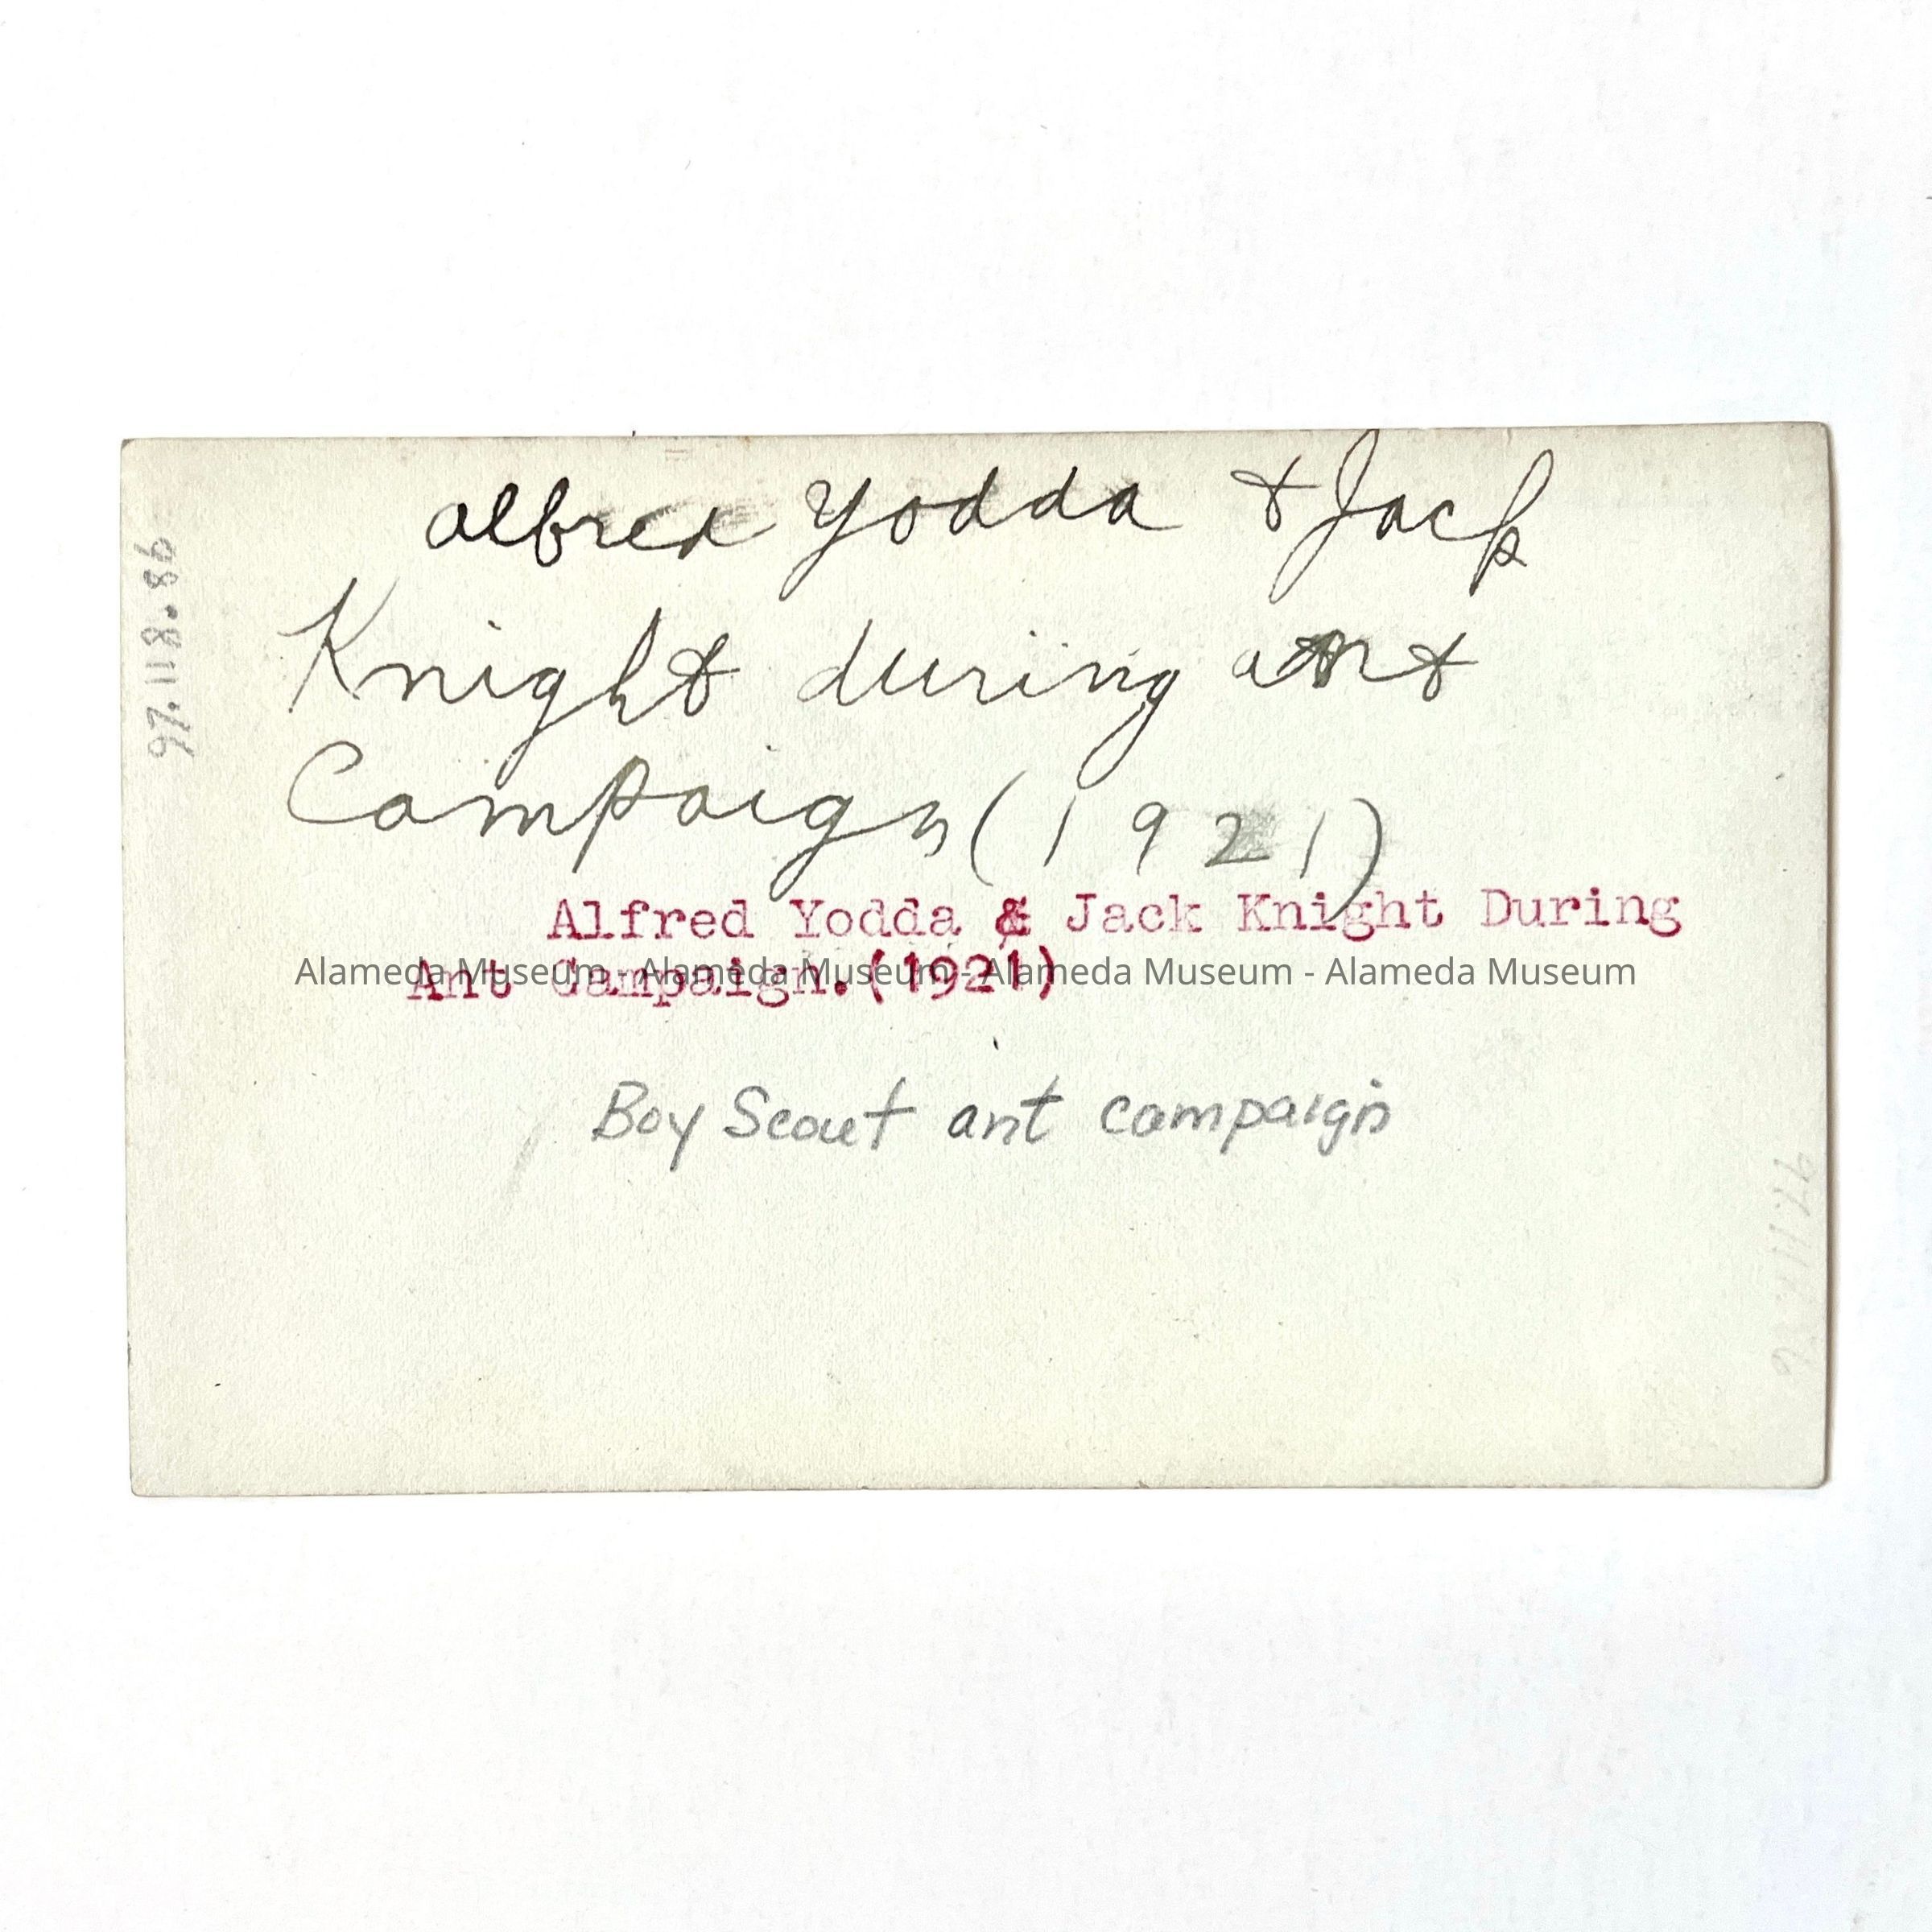 Alfred Yodda & Jack
Knight during ant
Campaign (1921)
Alfred Yodda & Jack Knight During
Ant Campaign.(1921)
Alameda Museum - Alameda Museum - Alameda Museum - Alameda Museum
Boy Scout ant campaign
97.118.86